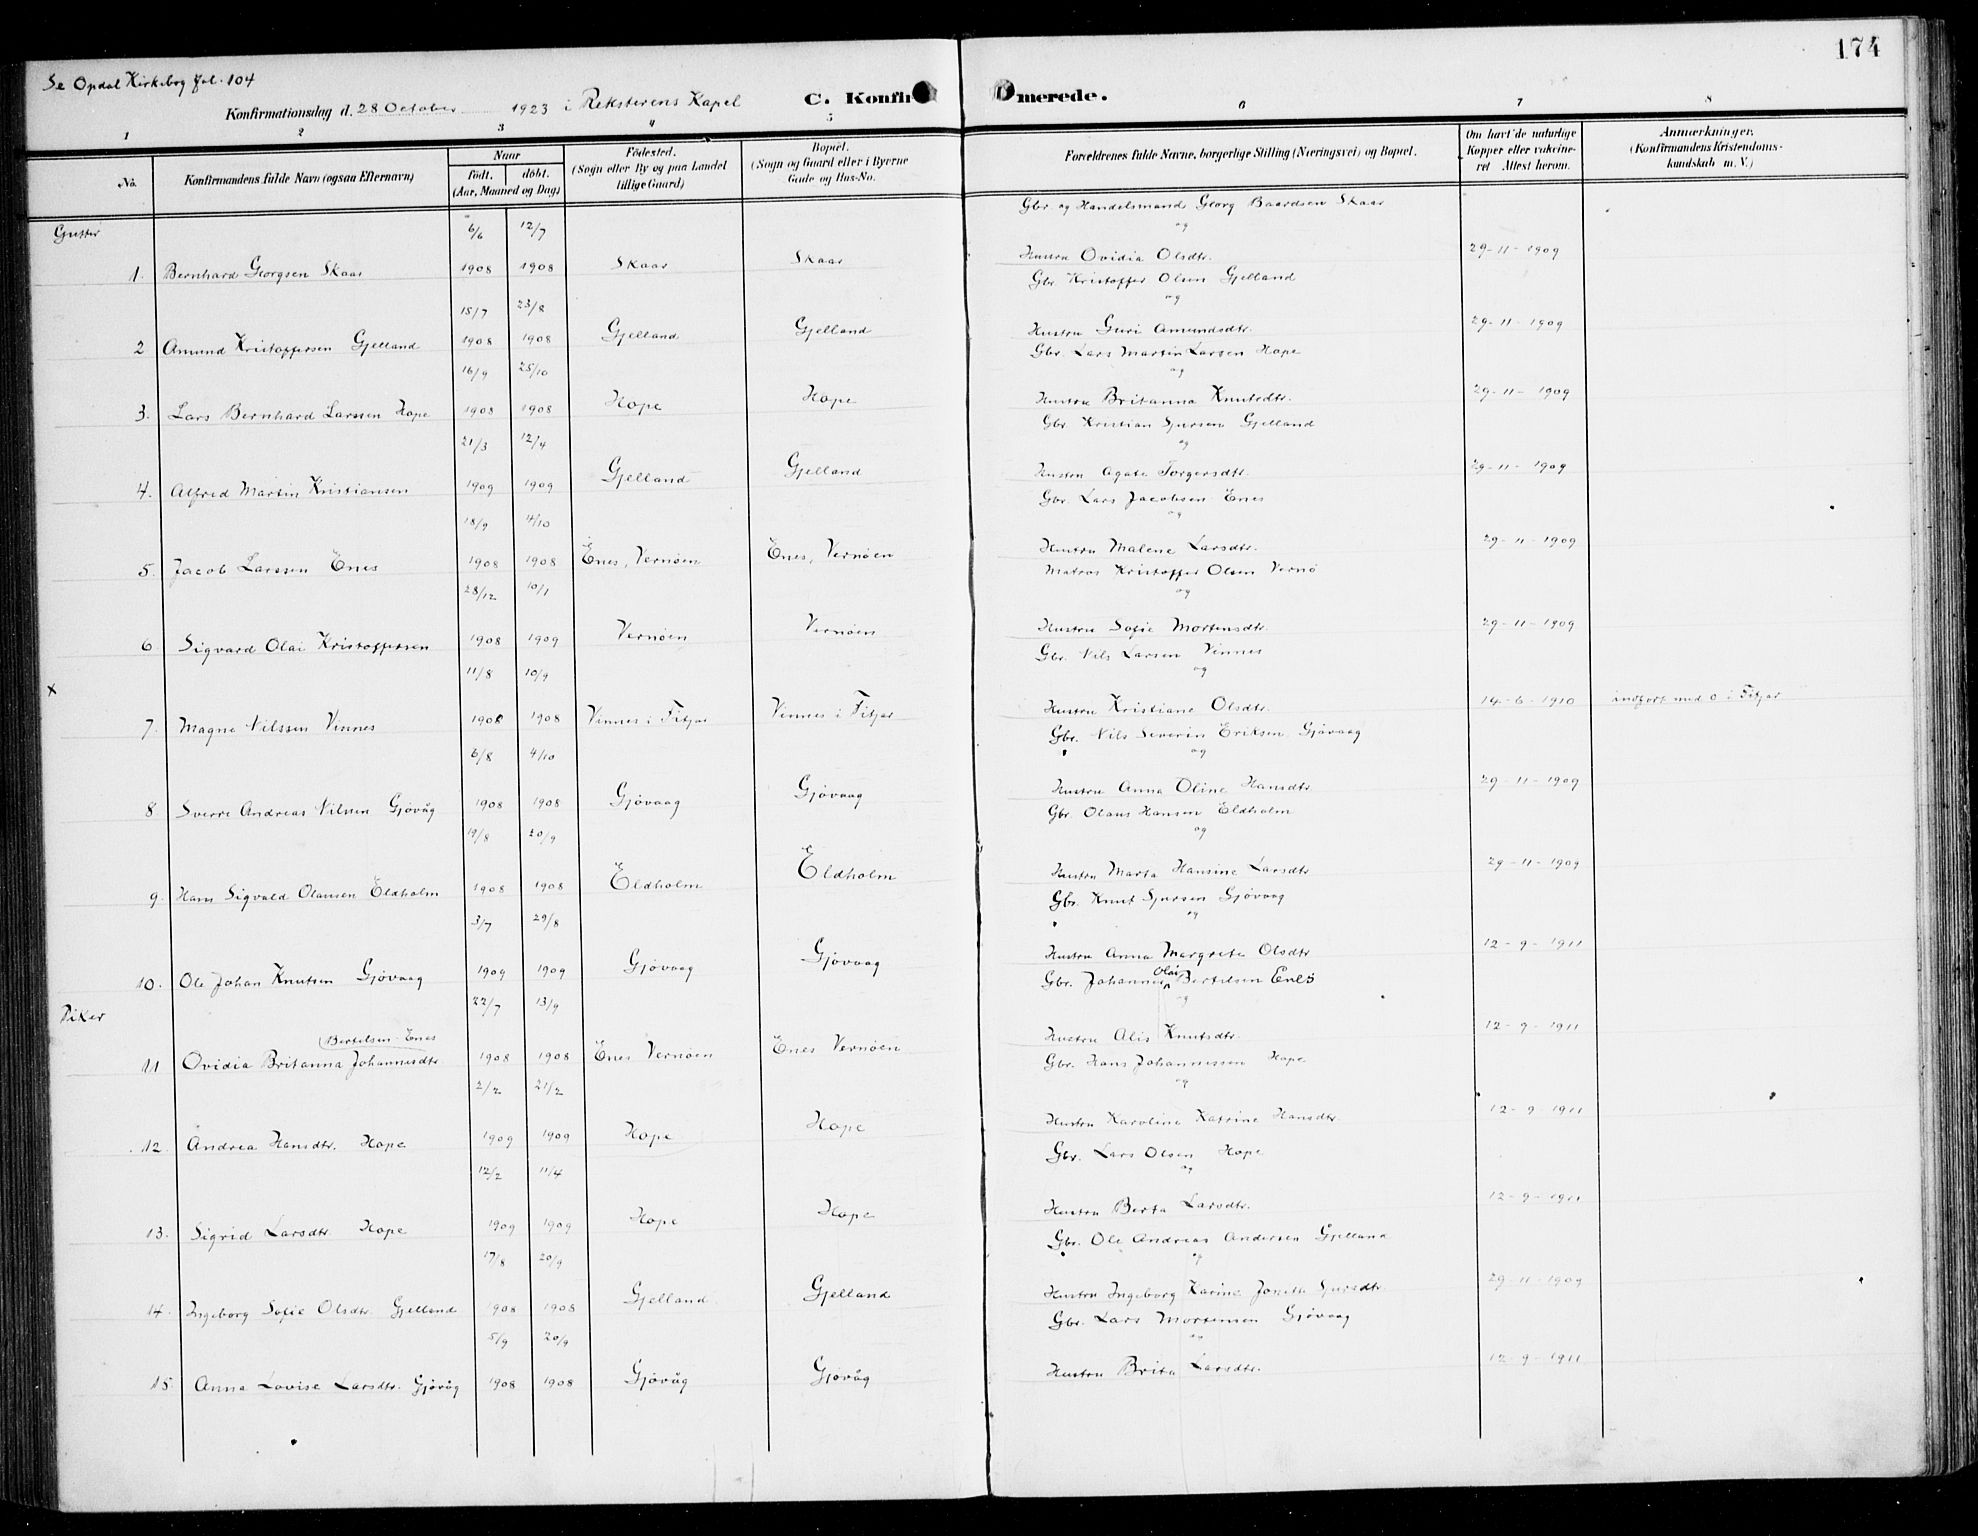 174
Se Opdal Kirkebog fol. 104
Konfirmationsdag d. 28 October 1923 i Reksterens Kapel C. Konfirmerede.
1 2 3 4 5 6 7 8
No. Konfirmandens fulde Navn (ogsaa Efternavn) Naar født. døbt. (Aar, Maaned og Dag) Fødested. (Sogn eller By og paa Landet tillige Gaard) Bopæl. (Sogn og Gaard eller i Byerne Gade og Hus-No. Forældrenes fulde Navne, borgerlige Stilling (Næringsvei) og Bopæl. Om havt de naturlige Kopper eller vaccineret Attest herom. Anmærkninger. (Konfirmandens Kristendomskundskab m. V.)
Gutter 6/6 12/7 Gbr. og Handelsmand Georg Baardsen Skaar og
1. Bernhard Georgsen Skaar 1908 1908 Skaar Skaar Hustru Ovidia Olsdtr. 29-11-1909
15/7 23/8 Gbr Kristoffer Olsen Gjelland og
2 Amund Kristoffersen Gjelland 1908 1908 Gjelland Gjelland Hustru Guri Amundsdtr. 29-11-1909
16/9 25/10 Gbr. Lars Martin Larsen Hope og
3. Lars Bernhard Larssen Hope 1908 1908 Hope Hope Hustru Britanna Knutsdtr. 29-11-1909
21/3 12/4 Gbr Kristian Sjursen Gjelland og
4. Alfred Martin Kristiansen 1909 1909 Gjelland Gjelland Hustru Agate Torgersdtr. 29-11-1909
18/9 4/10 Gbr. Lars Jacobsen Enes og
5. Jacob Larssen Enes 1908 1908 Enes, Vernøen Enes, Vernøen Hustru Malene Larsdtr. 29-11-1909
28/12 10/1 Matros Kristoffer Olsen Vernø og
6 Sigvard Olai Kristoffersen 1908 1909 Vernøen Vernøen Hustru Sofie Mortensdtr. 29-11-1909
x 11/8 10/9 Gbr. Nils Larsen Vinnes og
7. Magne Nilssen Vinnes 1908 1908 Vinnes i Fitjar Vinnes i Fitjar Hustru Kristiane Olsdtr. 14-6-1910 indført med 0 i Fitjar
6/8 4/10 Gbr. Nils Severin Eriksen Gjøvaag og
8 Sverre Andreas Nilsen Gjøvåg 1908 1908 Gjøvaag Gjøvaag Hustru Anna Oline Hansdtr. 29-11-1909
19/8 20/9 Gbr Olaus Hansen Eldholm og
9. Hans Sigvald Olausen Eldholm 1908 1908 Eldholm Eldholm Hustru Marta Hansine Larsdtr 29-11-1909
3/7 29/8 Gbr. Knut Sjursen Gjøvaag og
10. Ole Johan Knutsen Gjøvaag 1909 1909 Gjøvaag Gjøvaag Hustru Anna Margrete Olsdtr 12-9-1911
Piker 22/7 13/9 Gbr. Johannes Olai Bertelsen Enes og
(Bertelsen-Enes
11 Ovidia Britanna Johannesdtr 1908 1908 Enes Vernøen Enes Vernøen Hustru Alis Knutsdtr. 12-9-1911
2/2 21/2 Gbr. Hans Johannessen Hope og
12. Andrea Hansdtr. Hope 1909 1909 Hope Hope Hustru Karoline Katrine Hansdtr. 12-9-1911
12/2 11/4 Gbr. Lars Olsen Hope og
13. Sigrid Larsdtr. Hope 1909 1909 Hope Hope Hustru Berta Larsdtr. 12-9-1911
17/8 20/9 Gbr. Ole Andreas Andersen Gjelland og
14. Ingeborg Sofie Olsdtr. Gjelland 1908 1908 Gjelland Gjelland Hustru Ingeborg Karine Jonetta Sjursdtr. 29-11-1909
5/9 20/9 Gbr. Lars Mortensen Gjøvaag og
15. Anna Lovise Larsdtr. Gjøvåg 1908 1908 Gjøvåg Gjøvåg Hustru Brita Larsdtr. 12-9-1911